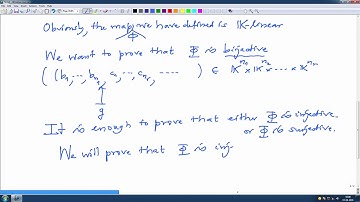 Obviously, the map we have defined is K-linear
Φ
We want to prove that Φ is bijective
((b₁, ..., bₙ₁, c₁, ..., cₙ₂, ......) ∈ Kⁿ¹ × Kⁿ² × ... × Kⁿʳ
g
It is enough to prove that either Φ is injective
or Φ is surjective.
We will prove that Φ is inj